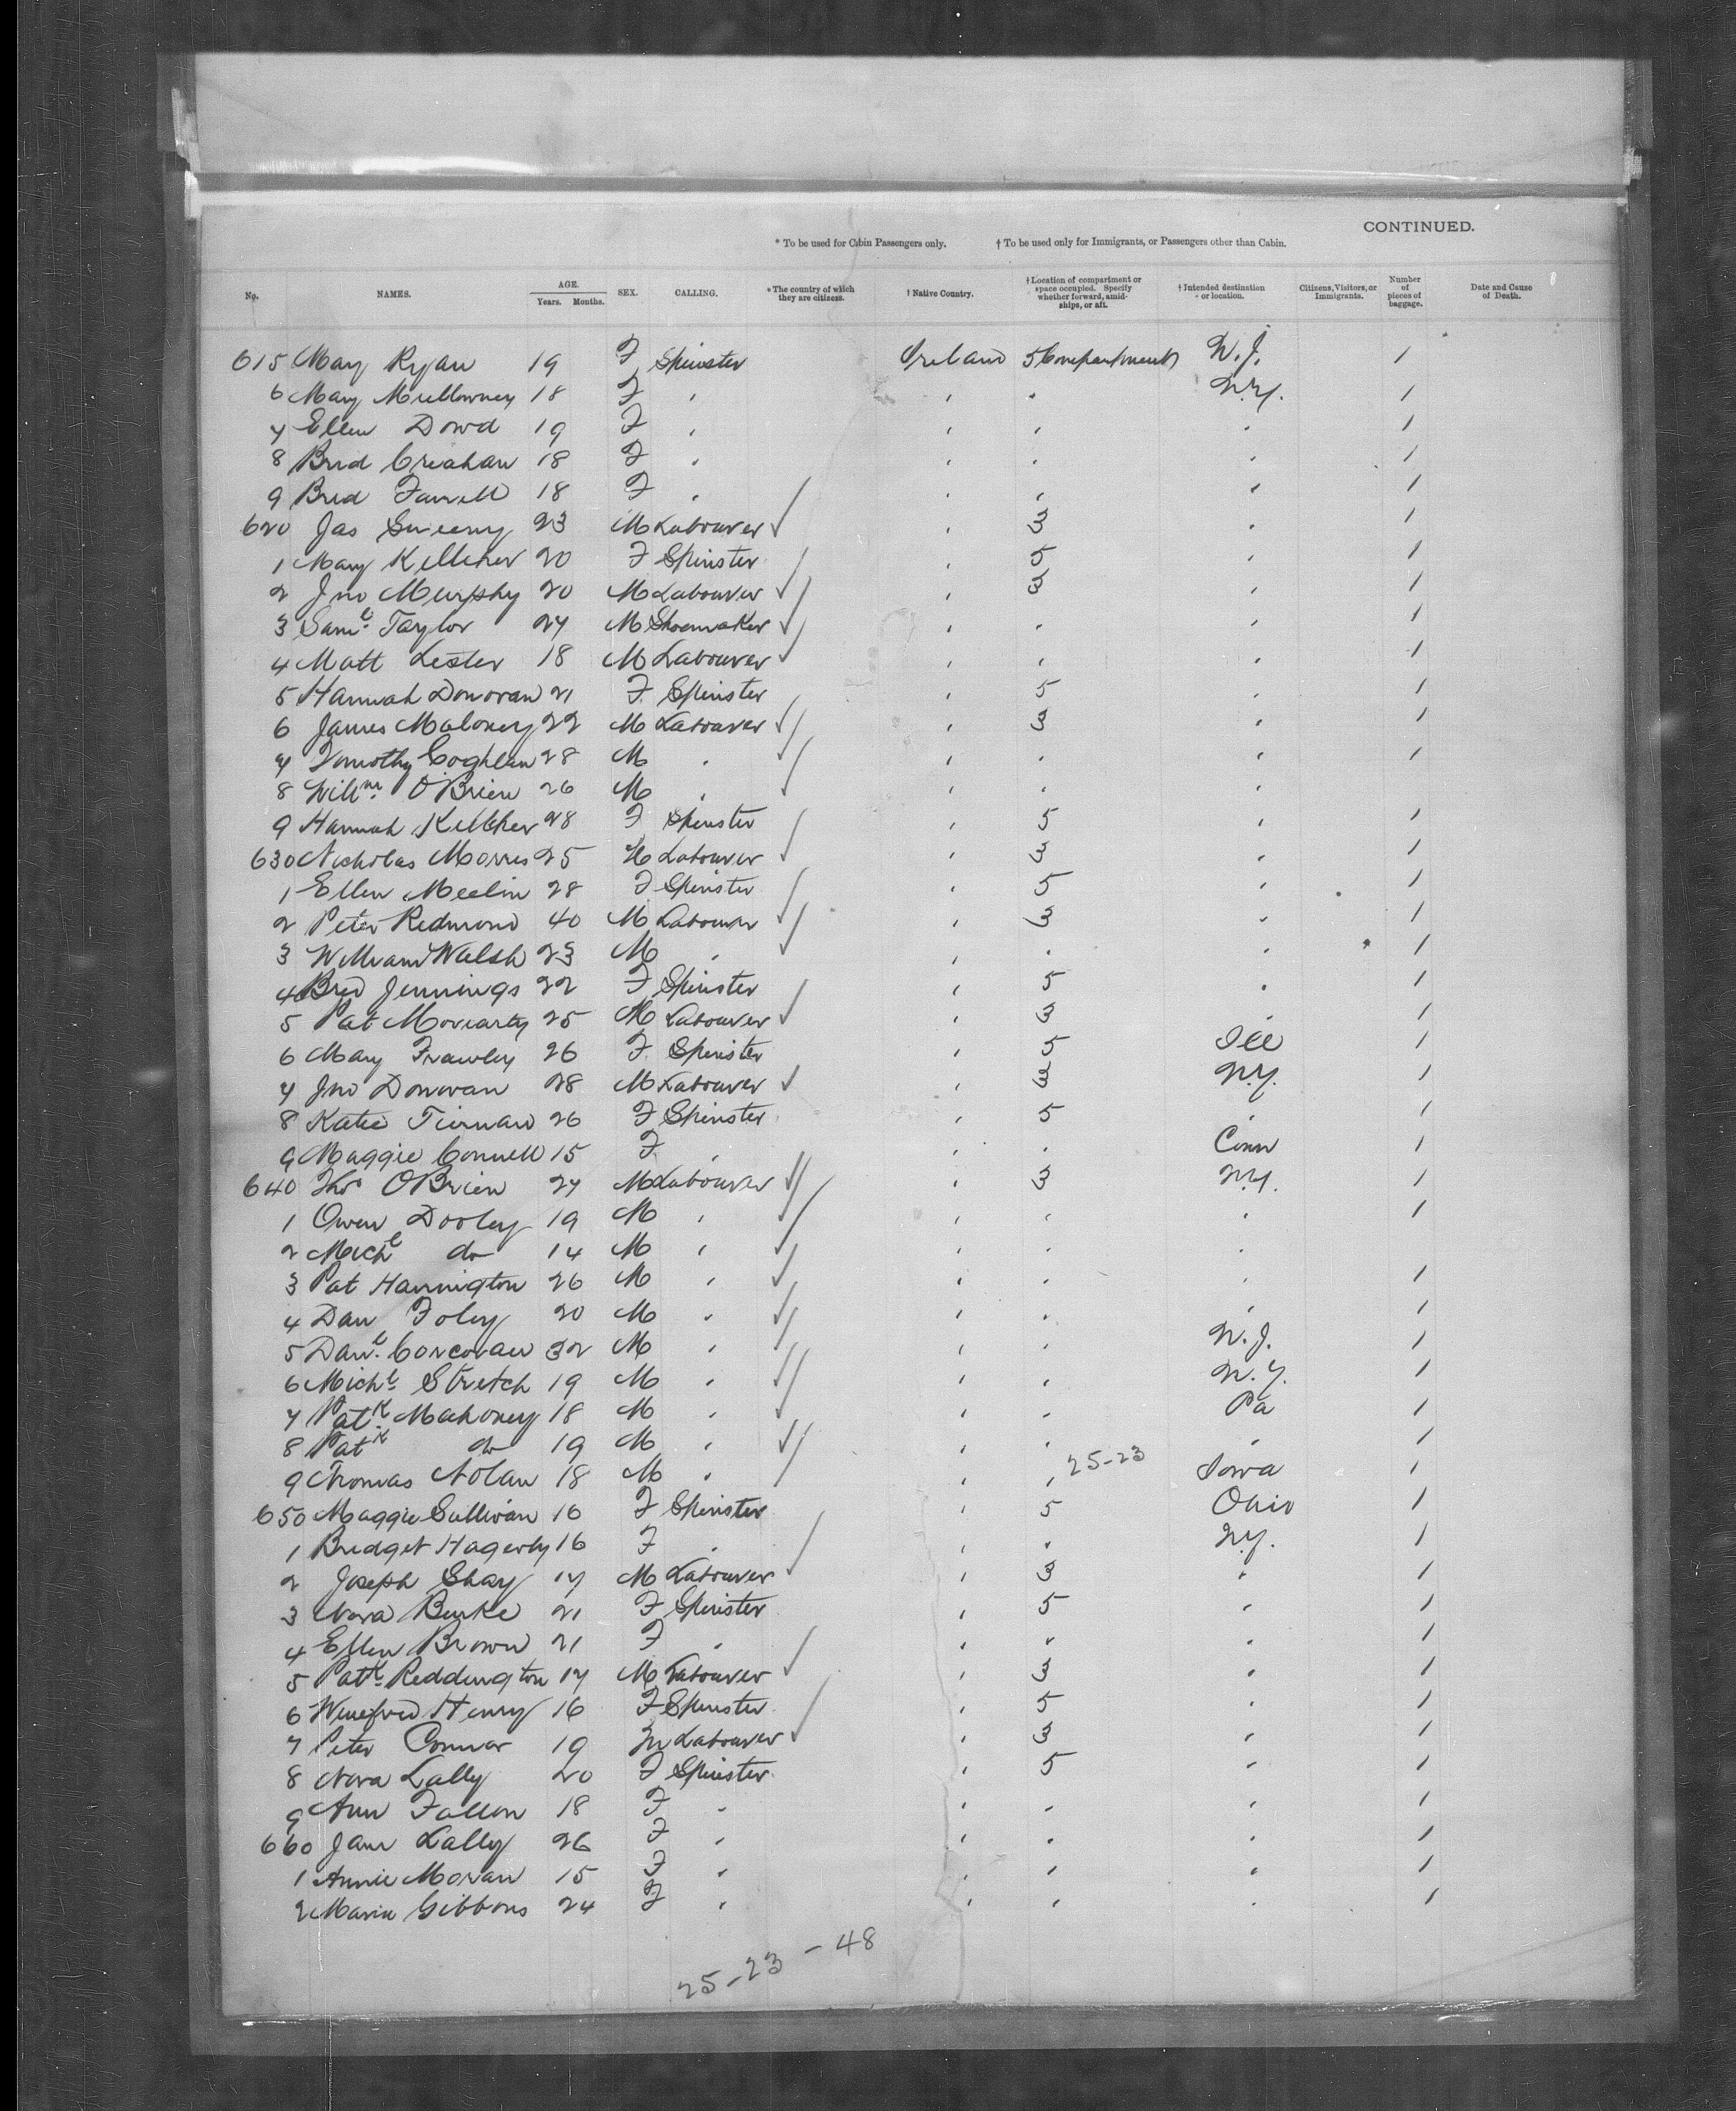 CONTINUED.
* To be used for Cabin Passengers only. † To be used only for Immigrants, or Passengers other than Cabin.
No. NAMES. AGE. Years. Months. SEX. CALLING. * The country of which they are citizens. † Native Country. † Location of compartment or space occupied. Specify whether forward, amidships, or aft. † Intended destination or location. Citizens, Visitors, or Immigrants. Number of pieces of baggage. Date and Cause of Death.
615 Mary Ryan 19 F Spinster Ireland 5 Compartment N.J. 1
6 Mary Mullowney 18 F " " " N.Y. 1
7 Ellen Dowd 19 F " " " " 1
8 Brid Creahan 18 F " " " " 1
9 Brid Farrell 18 F " " " " 1
620 Jas Sweeny 23 M Labourer ✓ " 3 " 1
1 Mary Kelleher 20 F Spinster " 5 " 1
2 Jno Murphy 20 M Labourer ✓ " 3 " 1
3 Saml Taylor 27 M Shoemaker ✓ " " " 1
4 Matt Lester 18 M Labourer ✓ " " " 1
5 Hannah Donovan 21 F Spinster " 5 " 1
6 James Maloney 22 M Labourer ✓ " 3 " 1
7 Timothy Coghlan 28 M " ✓ " " " 1
8 Willm O'Brien 26 M " ✓ " " "
9 Hannah Kelleher 28 F Spinster " 5 " 1
630 Nicholas Morris 25 M Labourer ✓ " 3 " 1
1 Ellen Meelin 28 F Spinster " 5 " 1
2 Peter Redmond 40 M Labourer ✓ " 3 " 1
3 William Walsh 23 M " ✓ " " " 1
4 Brid Jennings 22 F Spinster " 5 " 1
5 Pat Moriarty 25 M Labourer ✓ " 3 " 1
6 Mary Frawley 26 F Spinster " 5 Ill 1
7 Jno Donovan 28 M Labourer ✓ " 3 N.Y. 1
8 Katie Tiernan 26 F Spinster " 5 " 1
9 Maggie Connell 15 F " " " Conn 1
640 Thos O'Brien 27 M Labourer ✓ " 3 N.Y. 1
1 Owen Dooley 19 M " ✓ " " " 1
2 Michl do 14 M " ✓ " " "
3 Pat Hannington 26 M " ✓ " " " 1
4 Dan Foley 20 M " ✓ " " " 1
5 Danl Corcoran 32 M " ✓ " " N.J. 1
6 Michl Stretch 19 M " ✓ " " N.Y. 1
7 Patk Mahoney 18 M " ✓ " " Pa 1
8 Patk do 19 M " ✓ " " " 1
9 Thomas Nolan 18 M " ✓ " " 25-23 Iowa 1
650 Maggie Sullivan 16 F Spinster " 5 Ohio 1
1 Bridget Hagerty 16 F " " " N.Y. 1
2 Joseph Shay 17 M Labourer ✓ " 3 " 1
3 Nora Burke 21 F Spinster " 5 " 1
4 Ellen Brown 21 F " " " " 1
5 Patk Reddington 17 M Labourer ✓ " 3 " 1
6 Winefred Henry 16 F Spinster " 5 " 1
7 Peter Connor 19 M Labourer ✓ " 3 " 1
8 Nora Lally 20 F Spinster " 5 " 1
9 Ann Fallon 18 F " " " " 1
660 Jane Lally 26 F " " " " 1
1 Annie Moran 15 F " " " " 1
2 Maria Gibbons 24 F " " " " 1
25-23-48